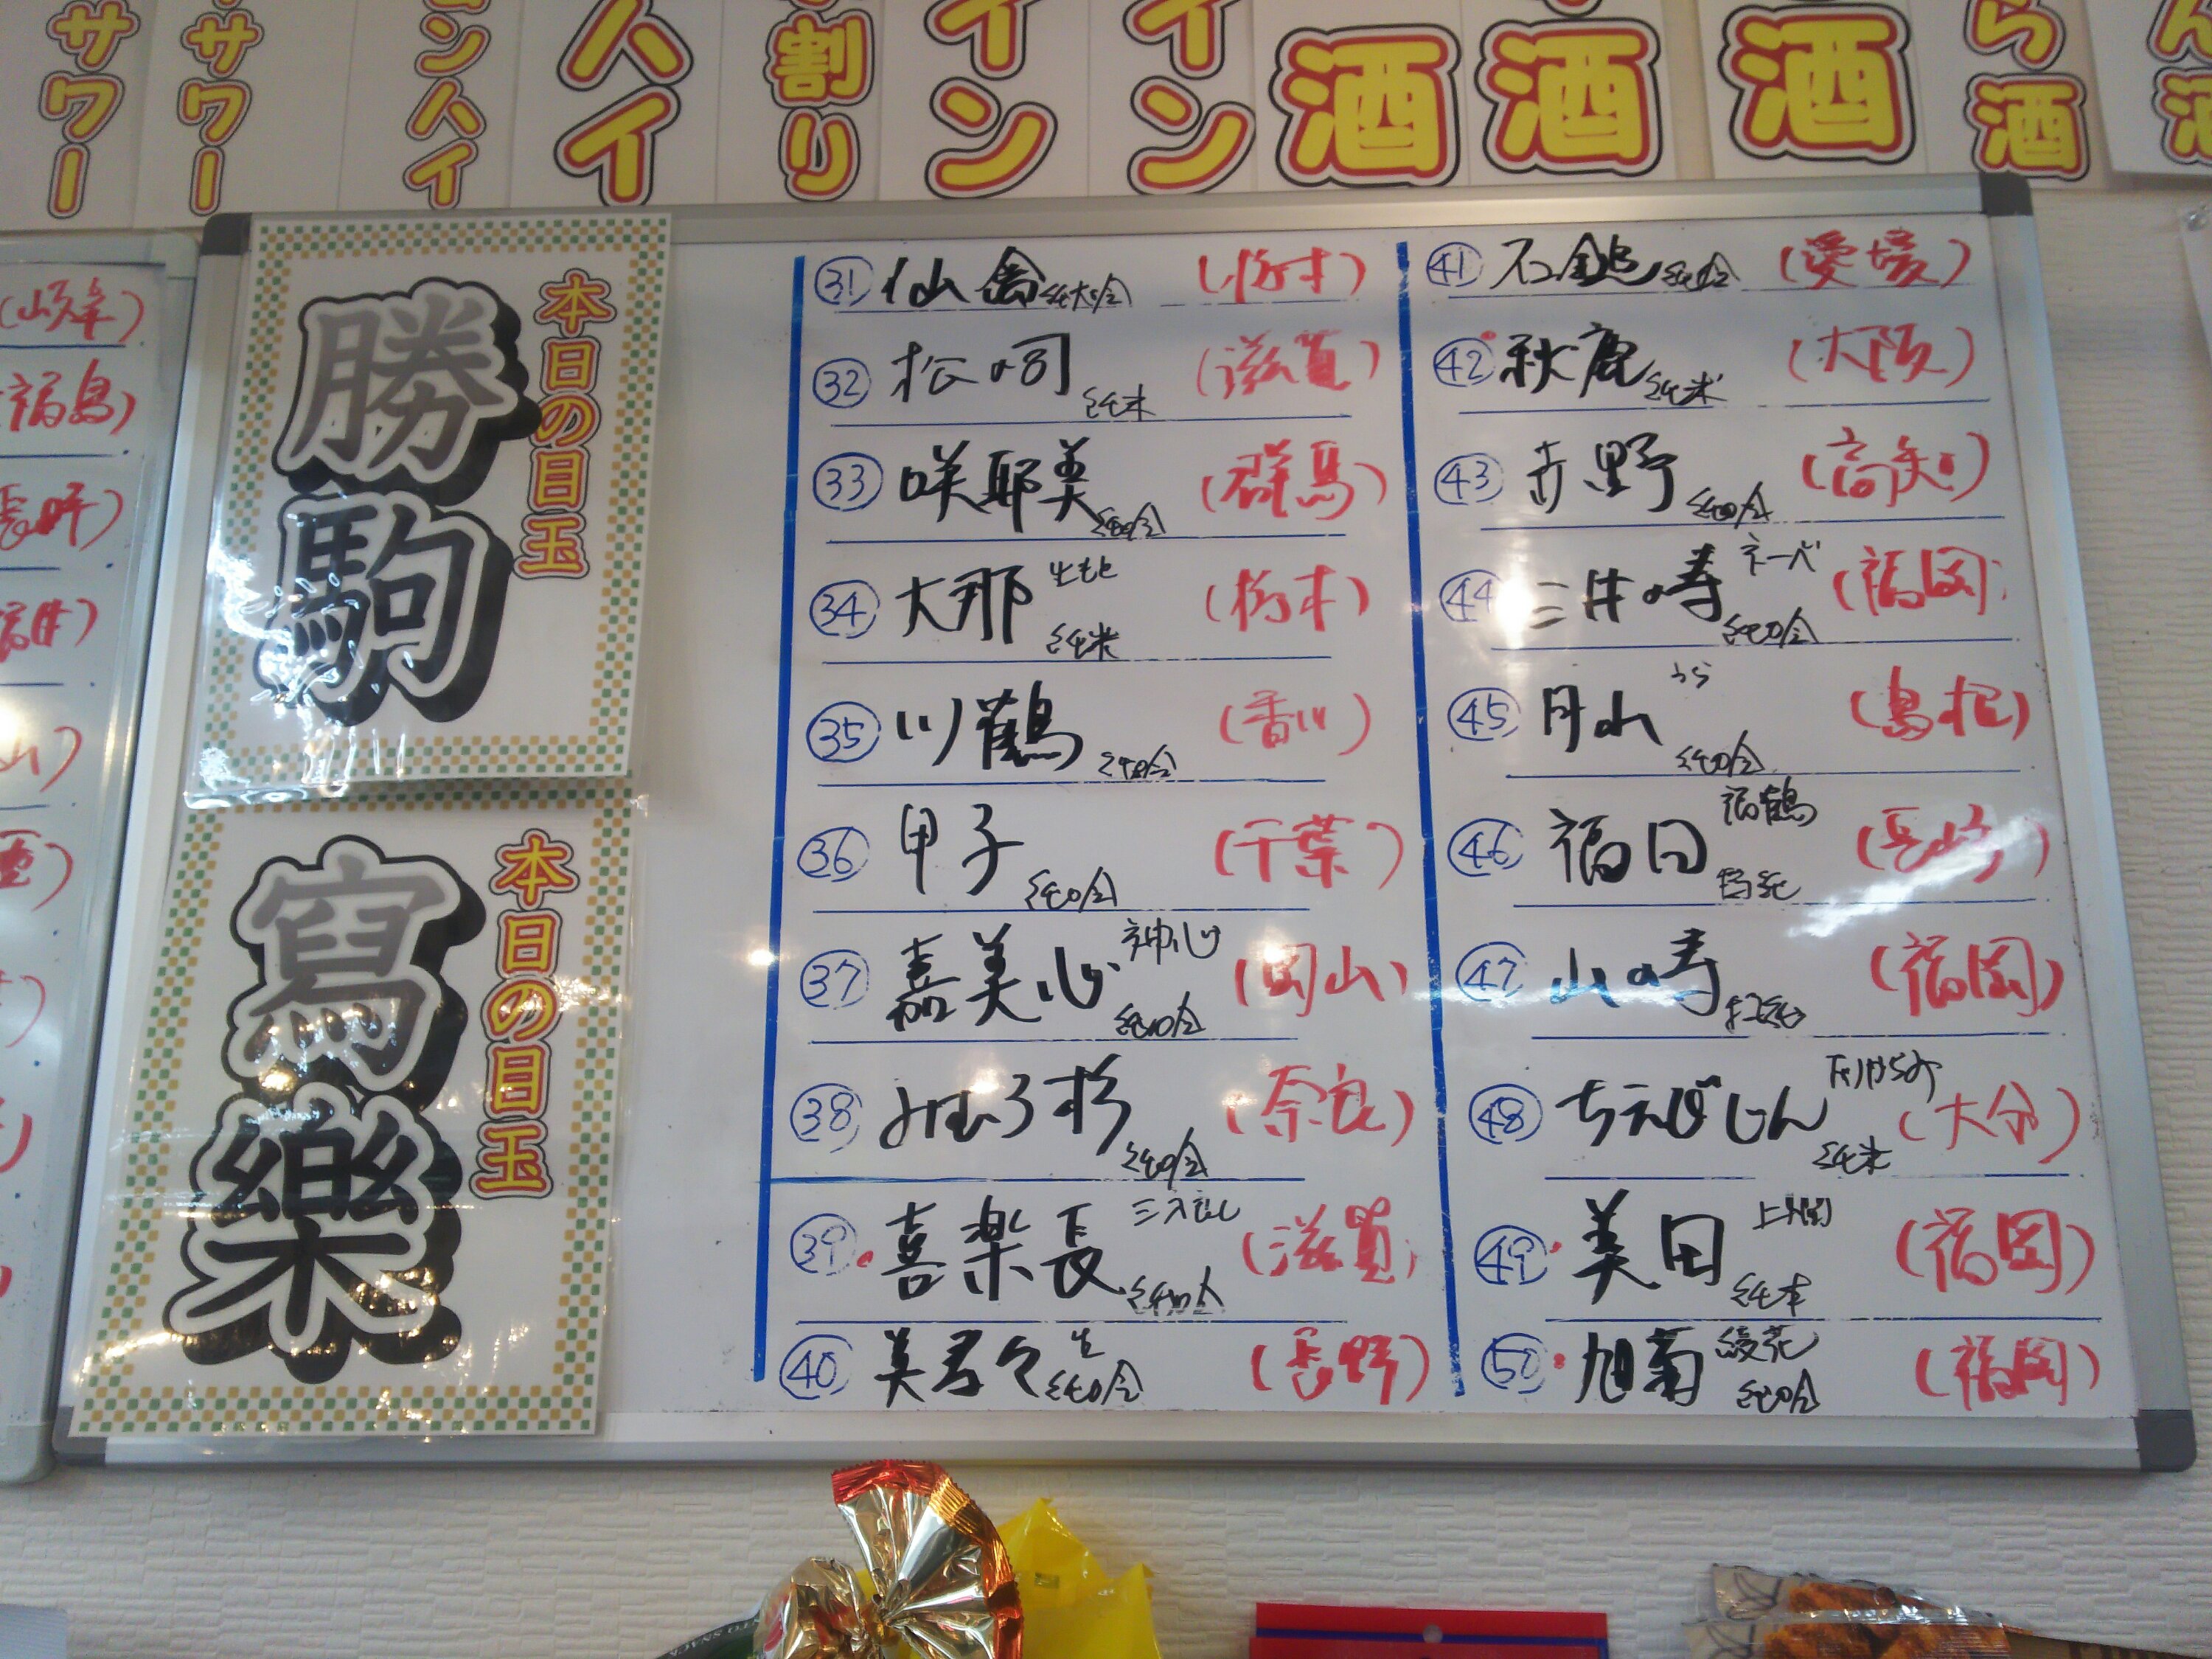 サワー
サワー
ンハイ
ハイ
割り
イン
イン
酒
酒
酒
ら酒
ん酒
(岐阜)
福島)
長崎)
福井)
山)
本日の目玉
勝駒
本日の目玉
寫樂
㉛ 仙禽 純大吟 (栃木)
㉜ 松の司 純米 (滋賀)
㉝ 咲耶美 純吟 (群馬)
㉞ 大那 生もと 純米 (栃木)
㉟ 川鶴 純吟 (香川)
㊱ 甲子 純吟 (千葉)
㊲ 嘉美心 神心 純吟 (岡山)
㊳ みむろ杉 純吟 (奈良)
㊴ 喜楽長 純吟 (滋賀)
㊵ 美寿々 生 純吟 (長野)
㊶ 石鎚 純吟 (愛媛)
㊷ 秋鹿 純米 (大阪)
㊸ 赤野 純吟 (高知)
㊹ 三井の寿 ネーベ 純吟 (福岡)
㊺ 月山 純吟 (島根)
㊻ 福田 福鶴 特純 (長崎)
㊼ 山の寿 特純 (福岡)
㊽ ちえびじん 純米 (大分)
㊾ 美田 純米 (福岡)
㊿ 旭菊 綾花 純吟 (福岡)